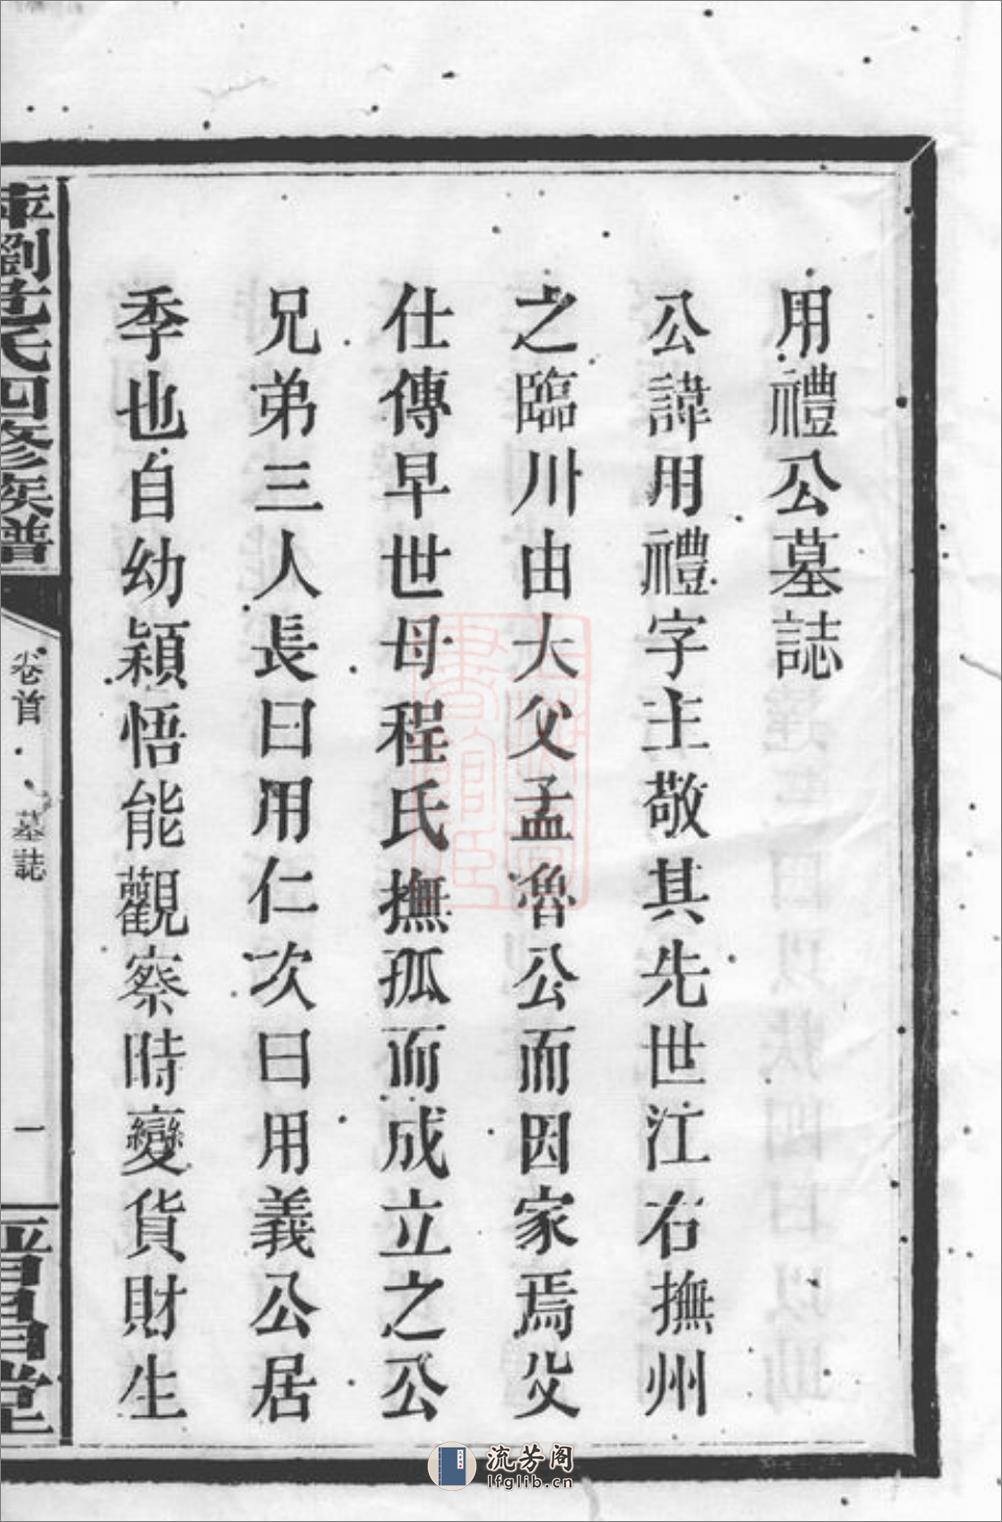 用禮公墓誌
公諱用禮字主敬其先世江右撫州
之臨川由大父孟魯公而因家焉父
仕傳早世母程氏撫孤而成立之公
兄弟三人長曰用仁次曰用義公居
季也自幼穎悟能觀察時變貨財生
劉氏四修族譜
卷首
墓誌
一
堂
流芳阁
lfglib.cn